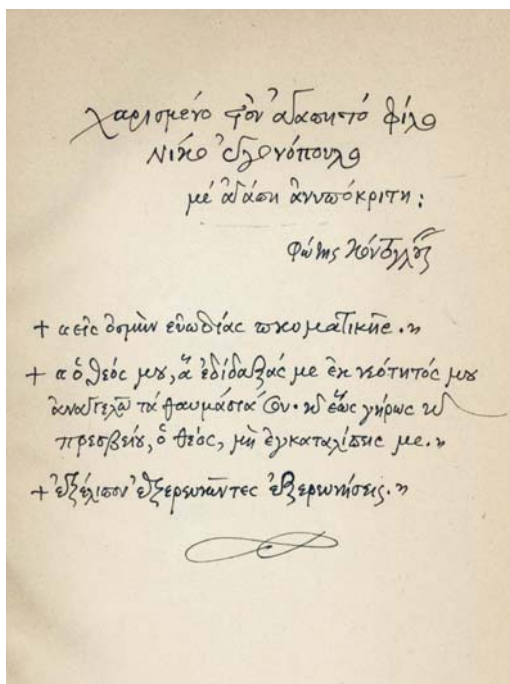 χαρισμένο στὸν ἀγαπητό φίλο
Νίκο Ἐγγονόπουλο
μέ ἀγάπη ἀνυπόκριτη:
Φώτης Κόντογλου
+ «εἰς ὀσμὴν εὐωδίας πνευματικῆς.»
+ «ὁ θεός μου, ἃ ἐδίδαξάς με ἐκ νεότητός μου
ἀναγγελῶ τά θαυμάσιά σου· καὶ ἕως γήρως καὶ
πρεσβείου, ὁ θεός, μὴ ἐγκαταλίπῃς με.»
+ «ἐξέλιπον ἐξερευνῶντες ἐξερευνήσεις.»